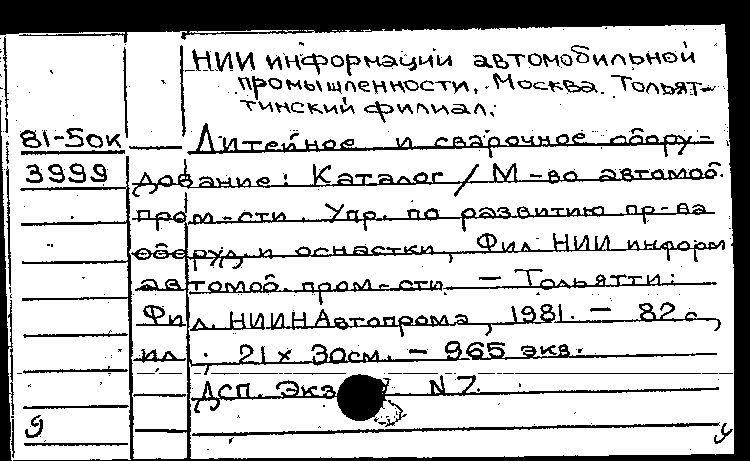 НИИ информации автомобильной
промышленности, Москва. Тольят-
тинский филиал.
81-50к Литейное и сварочное обору-
3999 дование: Каталог / М-во автомоб.
пром-сти. Упр. по развитию пр-ва
оборуд. и оснастки, Фил. НИИ информ
автомоб. пром-сти. — Тольятти:
Фил. НИИНАвтопрома, 1981. — 82 с.,
ил.; 21 х 30см. — 965 экз.
ДСП. Экз N 7.
9